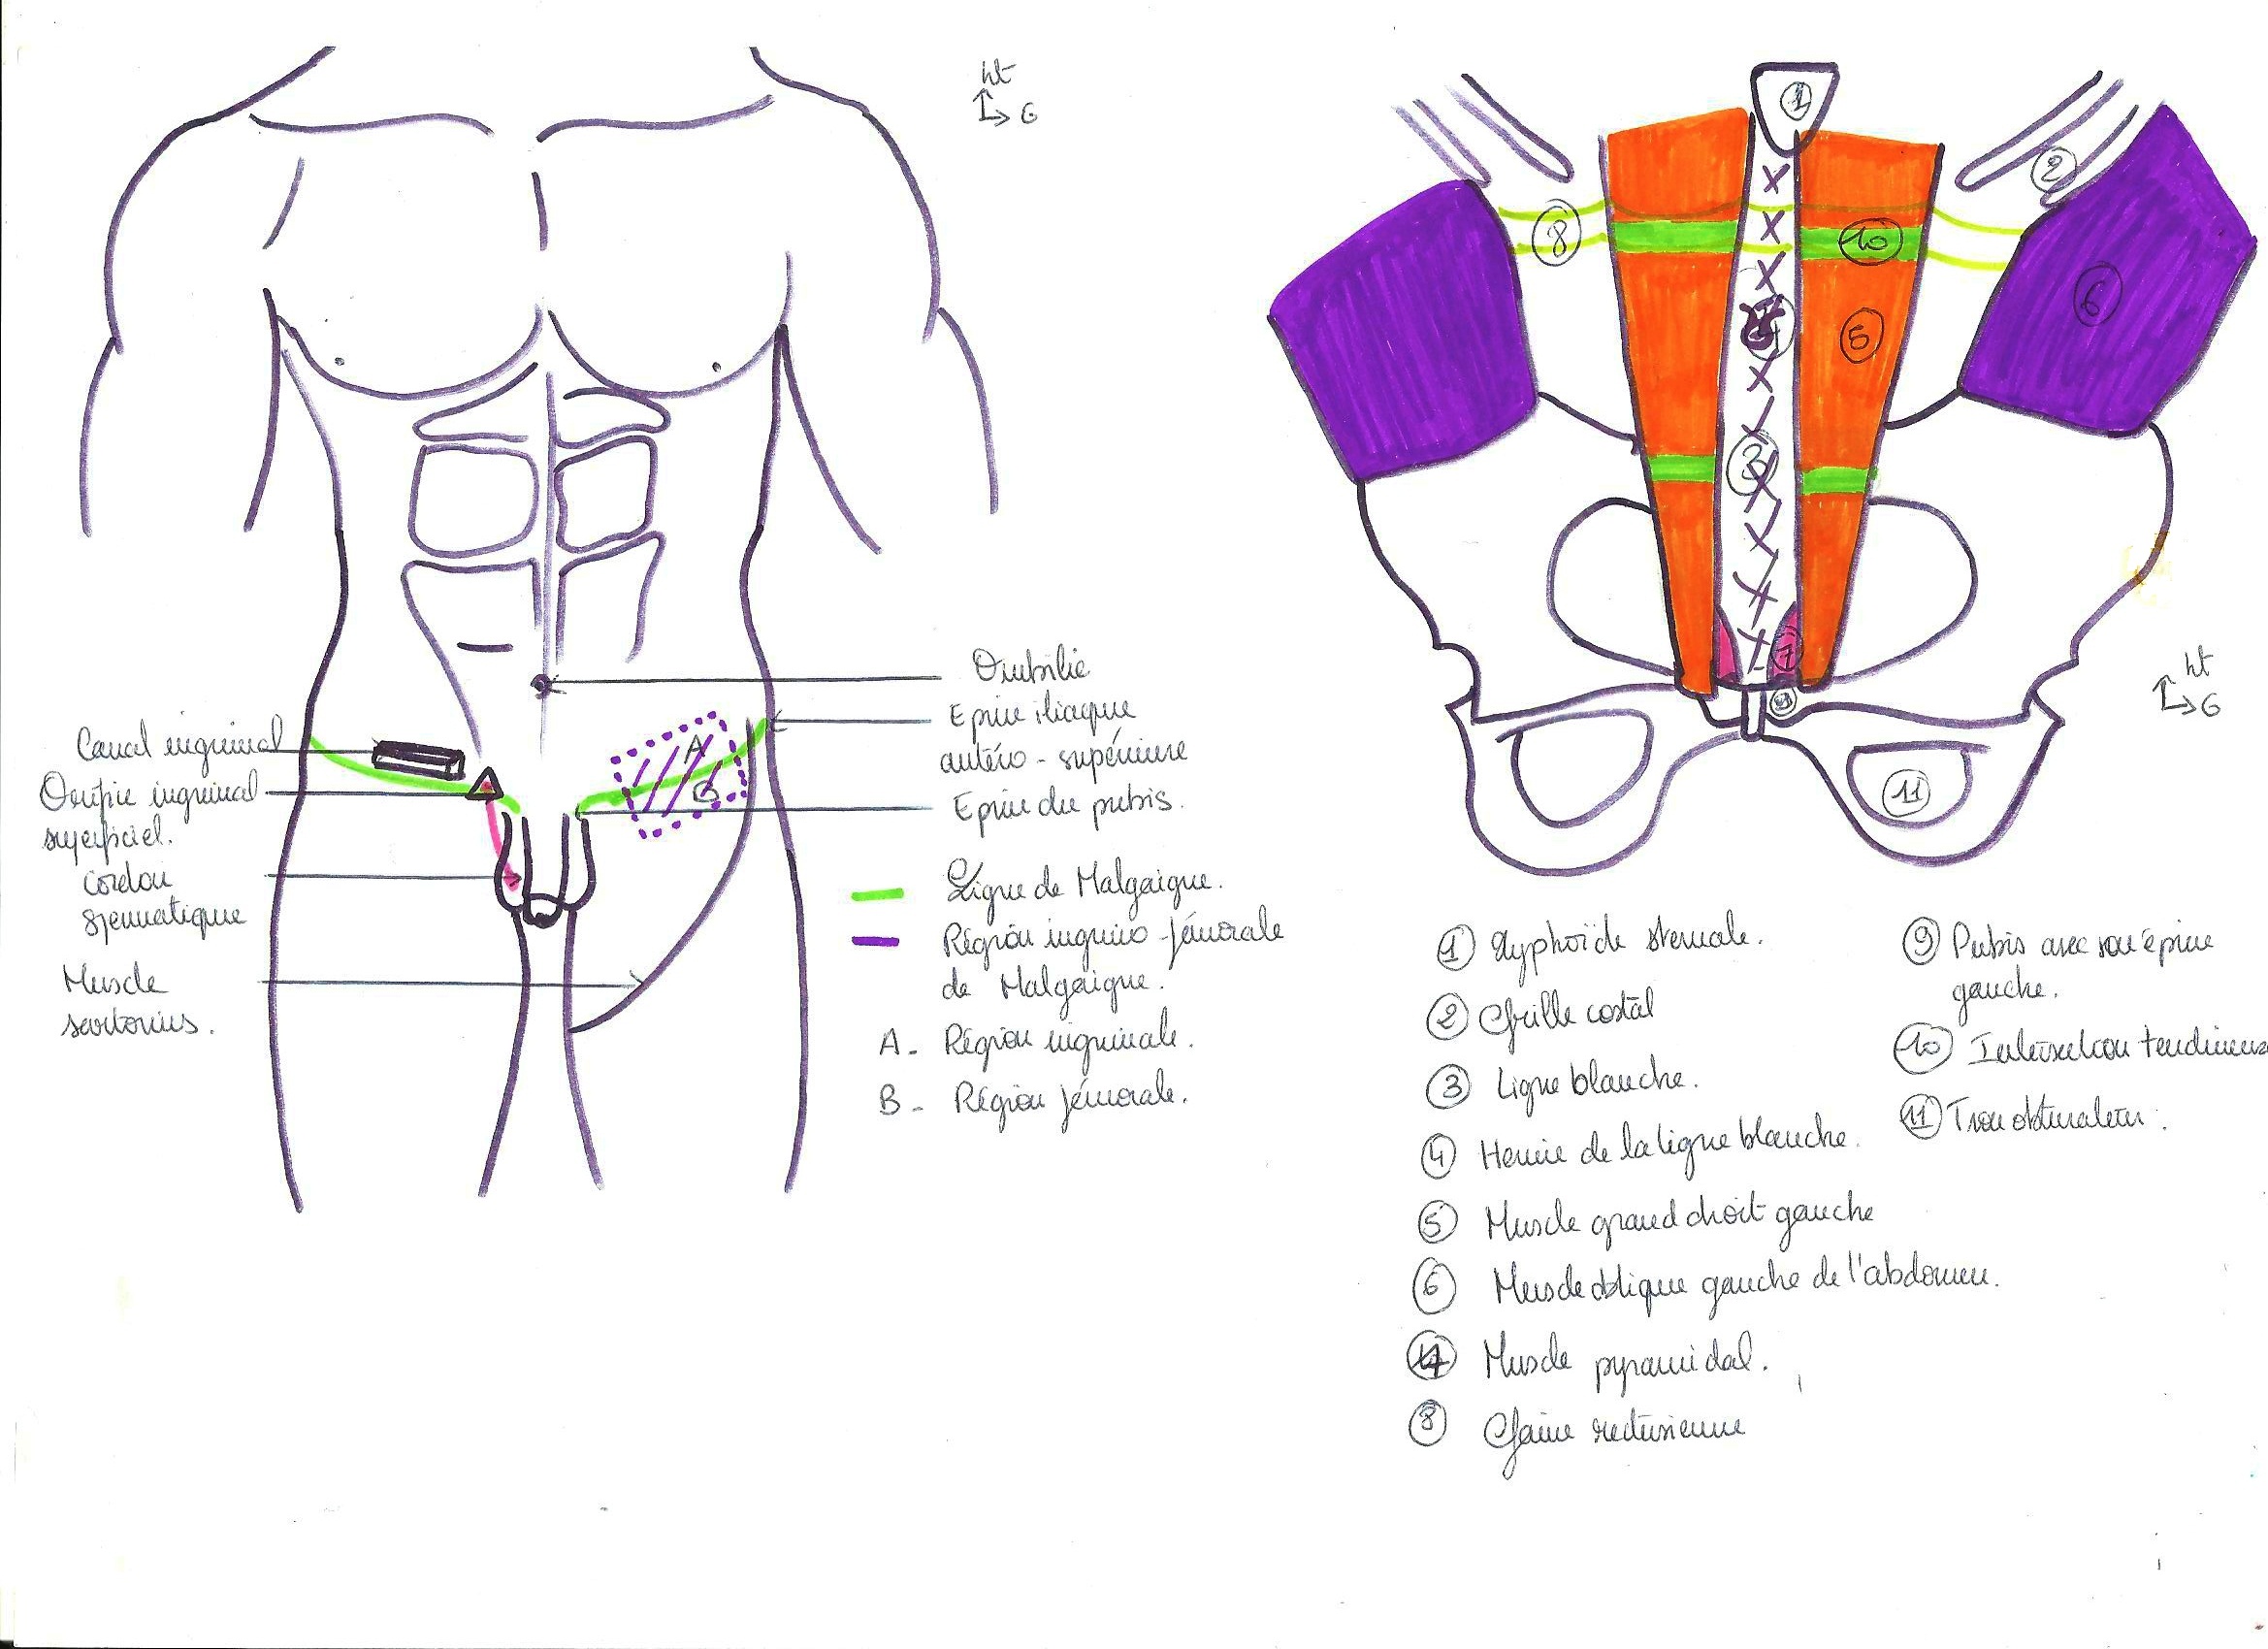 ht
G
Canal inguinal
Orifice inguinal
superficiel.
Cordon
spermatique
Muscle
sartorius.
Ombilic
Epine iliaque
antéro-supérieure
Epine du pubis.
A
B
Ligne de Malgaigne.
Région inguino-fémorale
de Malgaigne.
A- Région inguinale.
B- Région fémorale.
1
2
8
10
6
4
5
3
7
9
11
ht
G
1 Xyphoïde sternale.
2 Grille costal
3 Ligne blanche.
4 Hernie de la ligne blanche.
5 Muscle grand droit gauche
6 Muscle oblique gauche de l'abdomen.
Muscle pyramidal.
8 Gaine rectusienne
9 Pubis avec son épine
gauche.
10 Intersection tendineuse
11 Trou obturateur.